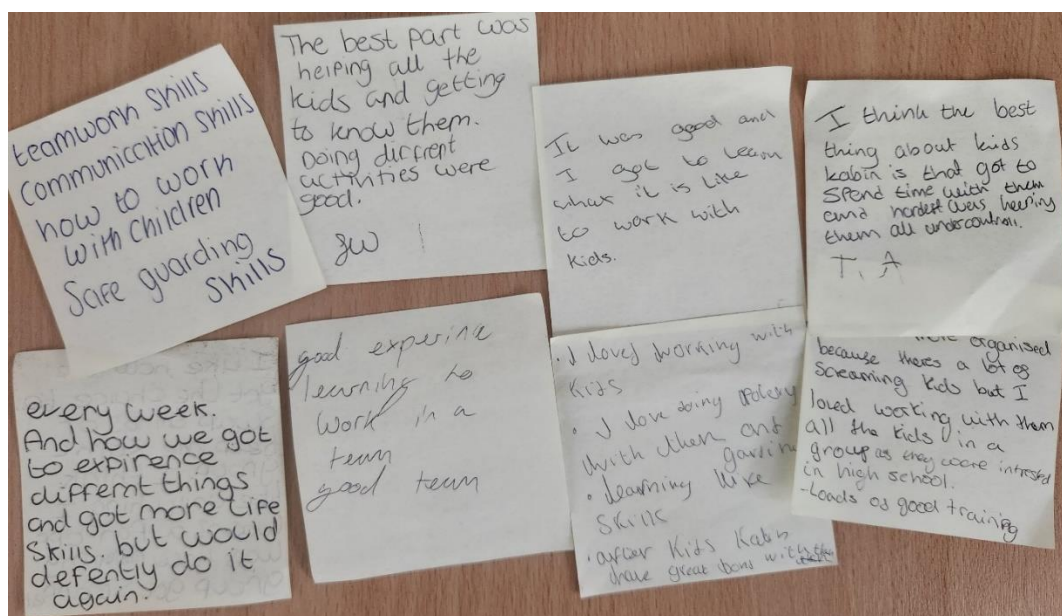 teamwork skills
communiccition skills
how to work
with children
Safe guarding
skills
The best part was
helping all the
kids and getting
to know them.
Doing diffrent
activities were
good.
JW
It was good and
I got to learn
what it is like
to work with
kids.
I think the best
thing about kids
kabin is that got to
spend time with them
and hardest was keeping
them all undercontroll.
T. A
every week.
And how we got
to expirence
differnt things
and got more life
skills. but would
defently do it
again.
good experince
learning to
work in a
team
good team
· I loved working with
kids
· I love doing
with them and
· learning like
skills
· after Kids Kabin
have great bons with
more organised
because there's a lot of
screaming kids but I
loved working with them
all the kids in a
group as they were intrestd
in high school.
-Loads of good training